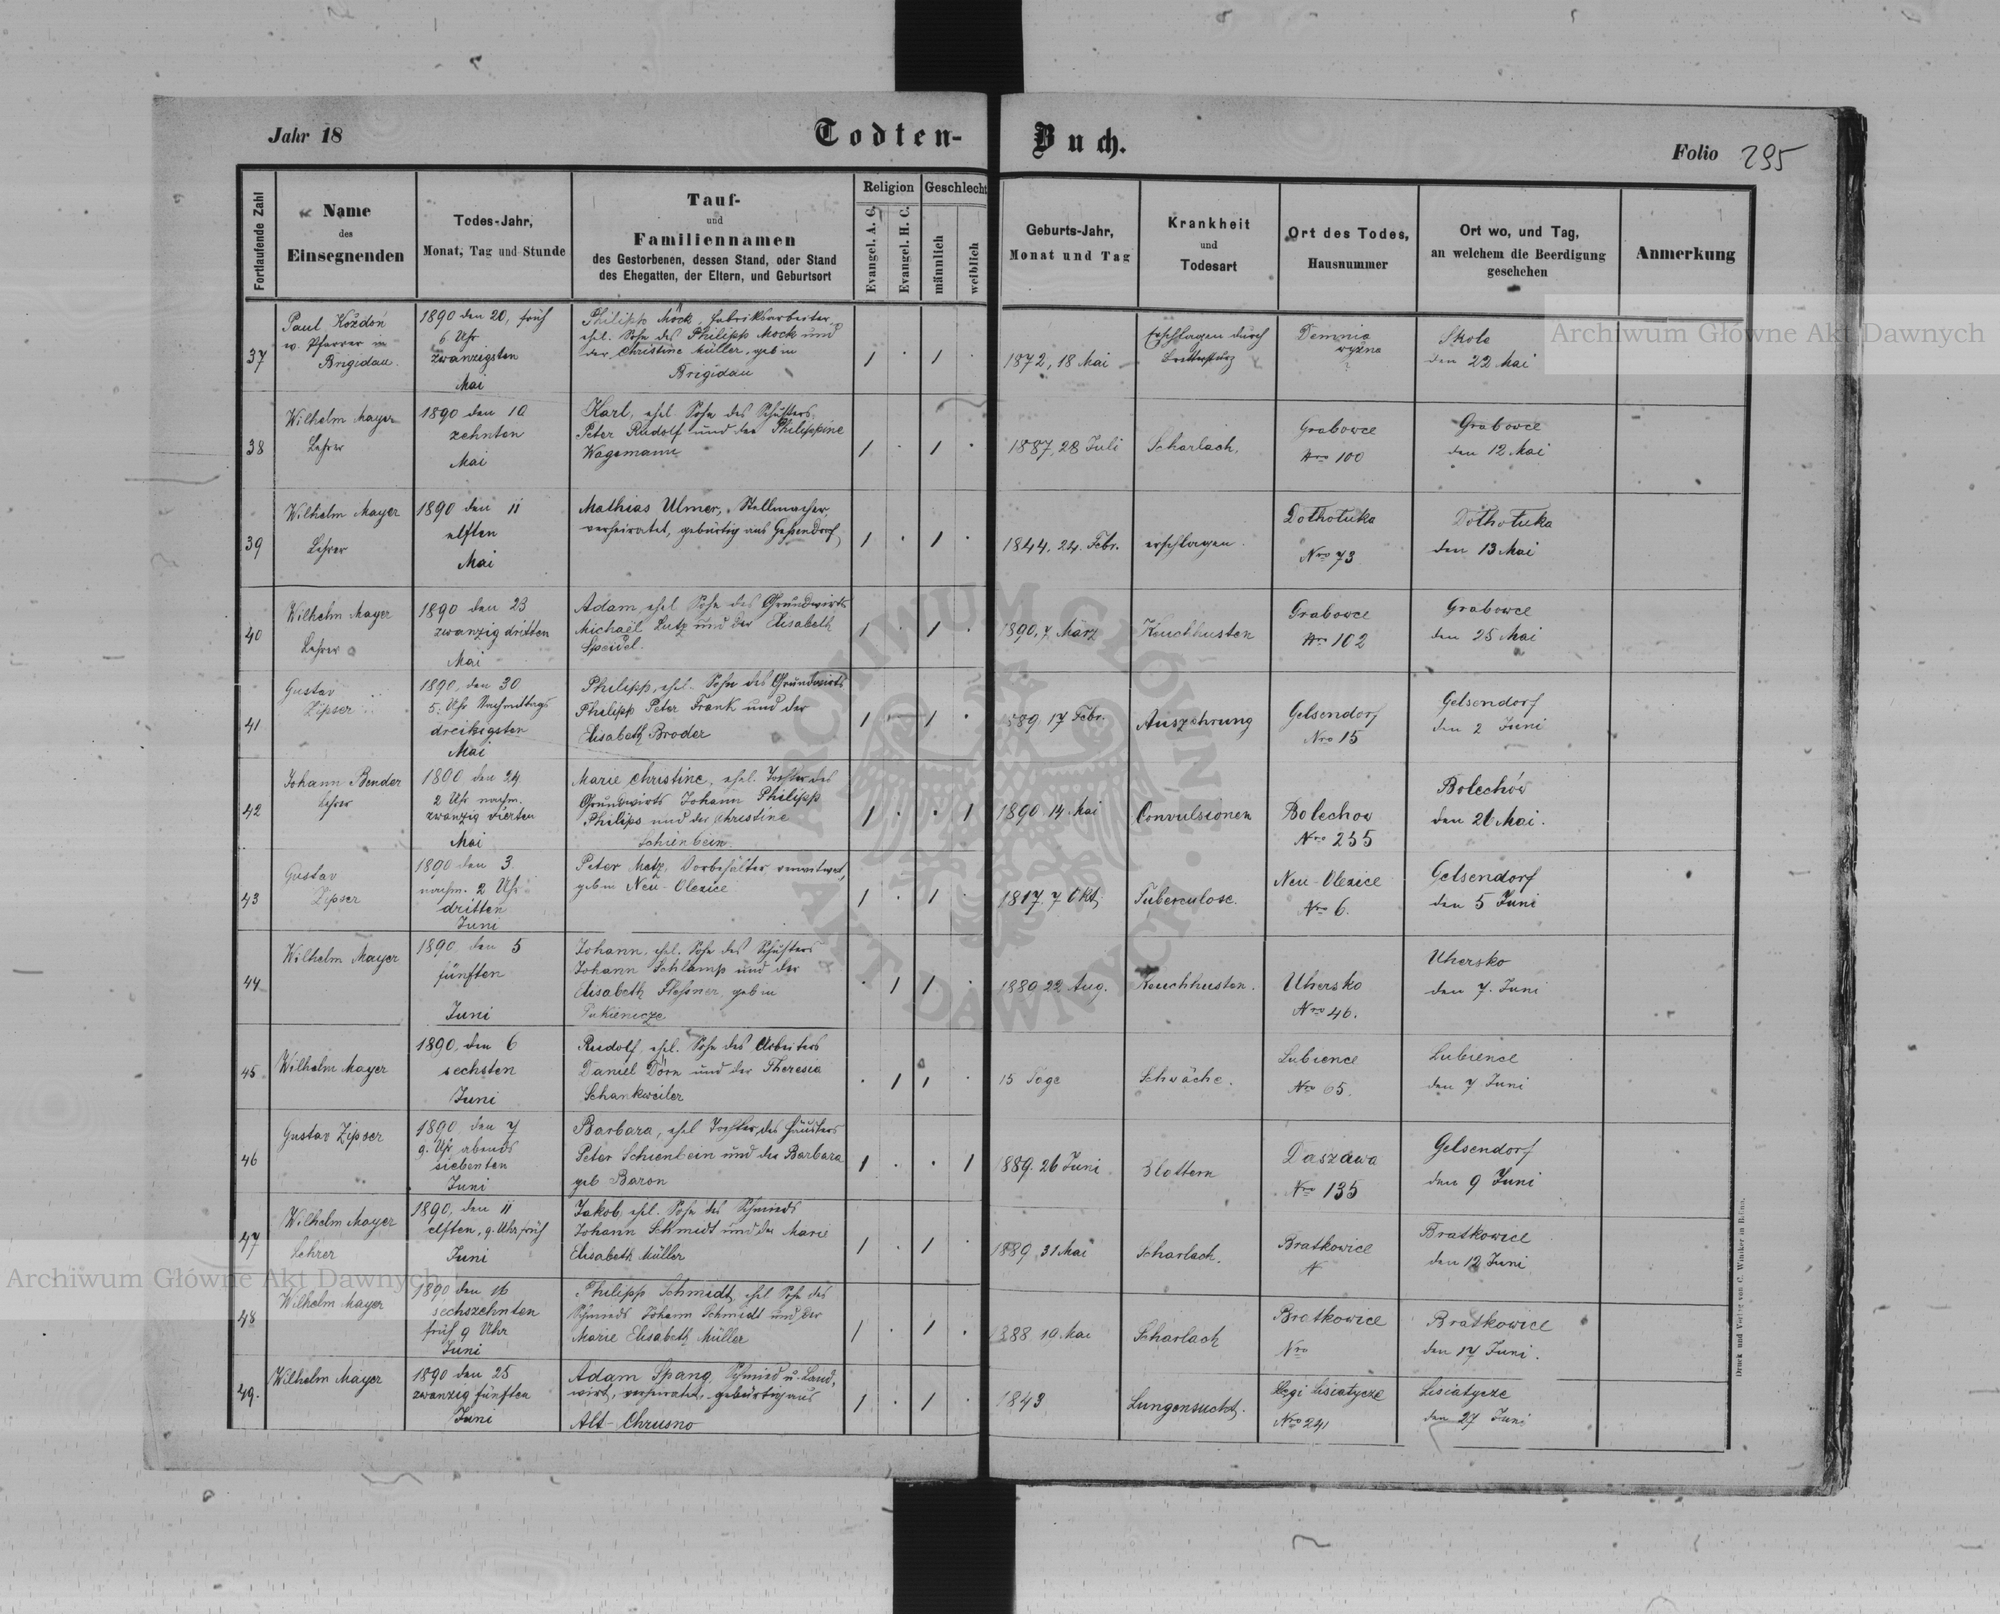 Jahr 18
Todten-Buch.
Folio 295
Fortlaufende Zahl
Name
des
Einsegnenden
Todes-Jahr,
Monat, Tag und Stunde
Tauf-
und
Familiennamen
des Gestorbenen, dessen Stand, oder Stand
des Ehegatten, der Eltern, und Geburtsort
Religion
Evangel. A. C.
Evangel. H. C.
Geschlecht
männlich
weiblich
Geburts-Jahr,
Monat und Tag
Krankheit
und
Todesart
Ort des Todes,
Hausnummer
Ort wo, und Tag,
an welchem die Beerdigung
geschehen
Anmerkung
37
Paul Kożdoń
ev. Pfarrer in
Brigidau.
1890 den 20, früh
6 Uhr
zwanzigsten
Mai
Philipp Mock, Fabriksarbeiter,
ehel. Sohn des Philipp Mock und
der Christine Müller, geb in
Brigidau
1 . 1 .
1872, 18 Mai
Erschlagen durch
Demnia
wyżna
Skole
den 22 Mai
38
Wilhelm Mayer
Lehrer
1890 den 10
zehnten
Mai
Karl, ehel. Sohn des Schusters
Peter Rudolf und der Philippine
Wagemann
1 . 1 .
1887, 28 Juli
Scharlach.
Grabowce
Nro 100
Grabowce
den 12 Mai
39
Wilhelm Mayer
Lehrer
1890 den 11
elften
Mai
Mathias Ulmer, Stellmacher,
verheiratet, gebürtig aus Gelsendorf
1 . 1 .
1844, 24. Febr.
erschlagen.
Dołhołuka
Nro 73
Dołhołuka
den 13 Mai
40
Wilhelm Mayer
Lehrer
1890 den 23
zwanzig dritten
Mai
Adam, ehel Sohn des Grundwirts
Michael Lutz und der Elisabeth
Speidel.
1 . 1 .
1890, 7 März
Keuchhusten
Grabowce
Nro 102
Grabowce
den 25 Mai
41
Gustav
Zipser
1890, den 30
5. Uhr Nachmittags
dreißigsten
Mai
Philipp, ehel. Sohn des Grundwirts
Philipp Peter Frank und der
Elisabeth Broder
1 . 1 .
889. 17 Febr.
Auszehrung
Gelsendorf
Nro 15
Gelsendorf
den 2 Juni
42
Johann Bender
Lehrer
1890 den 24
2 Uhr nachm.
zwanzig vierten
Mai
Marie Christine, ehel. Tochter des
Grundwirts Johann Philipp
Philips und der Christine
Schienbein
1 . . 1
1890 14. Mai
Convulsionen
Bolechow
Nro 255
Bolechów
den 26 Mai.
43
Gustav
Zipser
1890 den 3.
nachm. 2 Uhr
dritten
Juni
Peter Metz, Vorbehälter, verwitwet,
geb in Neu-Olexice
1 . 1 .
1817. 7 Okt.
Tuberculose.
Neu-Olexice
Nro 6.
Gelsendorf
den 5 Juni
44
Wilhelm Mayer
1890, den 5
fünften
Juni
Johann, ehel. Sohn des Schusters
Johann Schlamp und der
Elisabeth, geb in
. 1 1 .
1880 22 Aug.
Keuchhusten.
Uhersko
Nro 46.
Uhersko
den 7. Juni
45
Wilhelm Mayer
1890, den 6
sechsten
Juni
Rudolf, ehel. Sohn des Arbeiters
Daniel Dörn und der Theresia
Schankweiler
. 1 1 .
15 Tage
Schwäche.
Lubience
Nro 65.
Lubience
den 7 Juni
46
Gustav Zipser
1890, den 7
9. Uhr abends
siebenten
Juni
Barbara, ehel Tochter des Häuslers
Peter Schienbein und der Barbara
geb Baron
1 . . 1
1889. 26 Juni
Blattern
Daszawa
Nro 135
Gelsendorf
den 9 Juni
47
Wilhelm Mayer
Lehrer
1890, den 11
elften, 9. Uhr früh
Juni
Jakob, ehel. Sohn des Schmieds
Johann Schmidt und der Marie
Elisabeth Müller
1 . 1 .
1889 31 Mai
Scharlach.
Bratkowice
N
Bratkowice
den 12 Juni
48
Wilhelm Mayer
1890 den 16
sechszehnten
früh 9 Uhr
Juni
Philipp Schmidt, ehel Sohn des
Schmieds Johann Schmidt und der
Marie Elisabeth Müller
1 . 1 .
1888 19. Mai
Scharlach
Bratkowice
Nro
Bratkowice
den 17 Juni.
49.
Wilhelm Mayer
1890 den 25
zwanzig fünften
Juni
Adam Spang, Schmied u. Land-
wirt, verheiratet, gebürtig aus
Alt-Chrusno
1 . 1 .
1843
Lungensucht.
Łęgi Lisiatycze
Nro 241
Lisiatycze
den 27 Juni
Druck und Verlag von C. Winiker in Brünn.
Archiwum Główne Akt Dawnych
Archiwum Główne Akt Dawnych
ARCHIWUM GŁÓWNE · AKT DAWNYCH ·